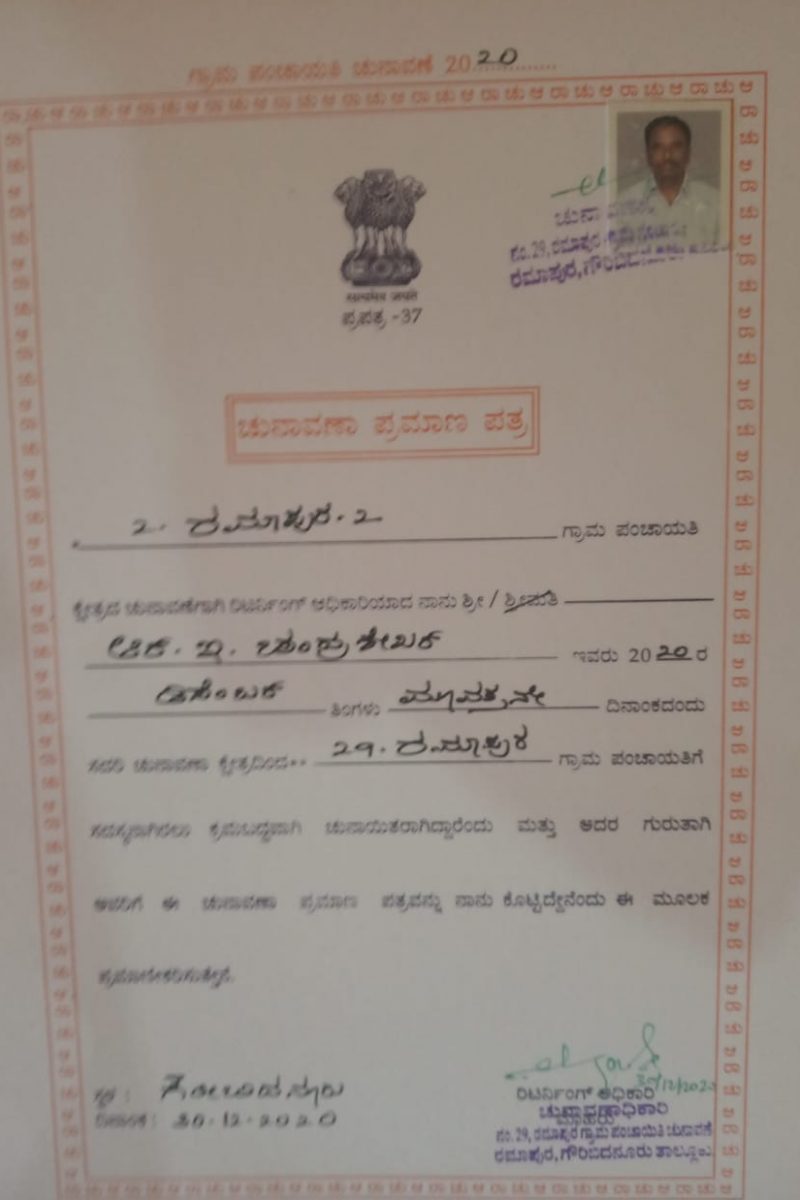 ಗ್ರಾಮ ಪಂಚಾಯತಿ ಚುನಾವಣೆ 2020
ಚುನಾ
ನಂ.29, ರಮಾಪುರ ಗ್ರಾಮ
ರಮಾಪುರ, ಗೌರಿಬಿದನೂರು
सत्यमेव जयते
ಪ್ರಪತ್ರ -37
ಚುನಾವಣಾ ಪ್ರಮಾಣ ಪತ್ರ
2. ರಮಾಪುರ-2 ಗ್ರಾಮ ಪಂಚಾಯತಿ
ಕ್ಷೇತ್ರದ ಚುನಾವಣೆಗಾಗಿ ರಿಟರ್ನಿಂಗ್ ಅಧಿಕಾರಿಯಾದ ನಾನು ಶ್ರೀ / ಶ್ರೀಮತಿ
ಆರ್. ವಿ. ಚಂದ್ರಶೇಖರ್ ಇವರು 2020 ರ
ಡಿಸೆಂಬರ್ ತಿಂಗಳು ಮೂವತ್ತನೇ ದಿನಾಂಕದಂದು
ಸದರಿ ಚುನಾವಣಾ ಕ್ಷೇತ್ರದಿಂದ 29. ರಮಾಪುರ ಗ್ರಾಮ ಪಂಚಾಯತಿಗೆ
ಸದಸ್ಯರಾಗಿರಲು ಕ್ರಮಬದ್ಧವಾಗಿ ಚುನಾಯಿತರಾಗಿದ್ದಾರೆಂದು ಮತ್ತು ಅದರ ಗುರುತಾಗಿ
ಅವರಿಗೆ ಈ ಚುನಾವಣಾ ಪ್ರಮಾಣ ಪತ್ರವನ್ನು ನಾನು ಕೊಟ್ಟಿದ್ದೇನೆಂದು ಈ ಮೂಲಕ
ಪ್ರಮಾಣೀಕರಿಸುತ್ತೇನೆ.
ಸ್ಥಳ : ಗೌರಿಬಿದನೂರು
ದಿನಾಂಕ : 30-12-2020
30/12/2020
ರಿಟರ್ನಿಂಗ್ ಅಧಿಕಾರಿ
ಚುನಾವಣಾಧಿಕಾರಿ
ನಂ.29, ರಮಾಪುರ ಗ್ರಾಮ ಪಂಚಾಯಿತಿ ಚುನಾವಣೆ
ರಮಾಪುರ, ಗೌರಿಬಿದನೂರು ತಾಲ್ಲೂಕು.